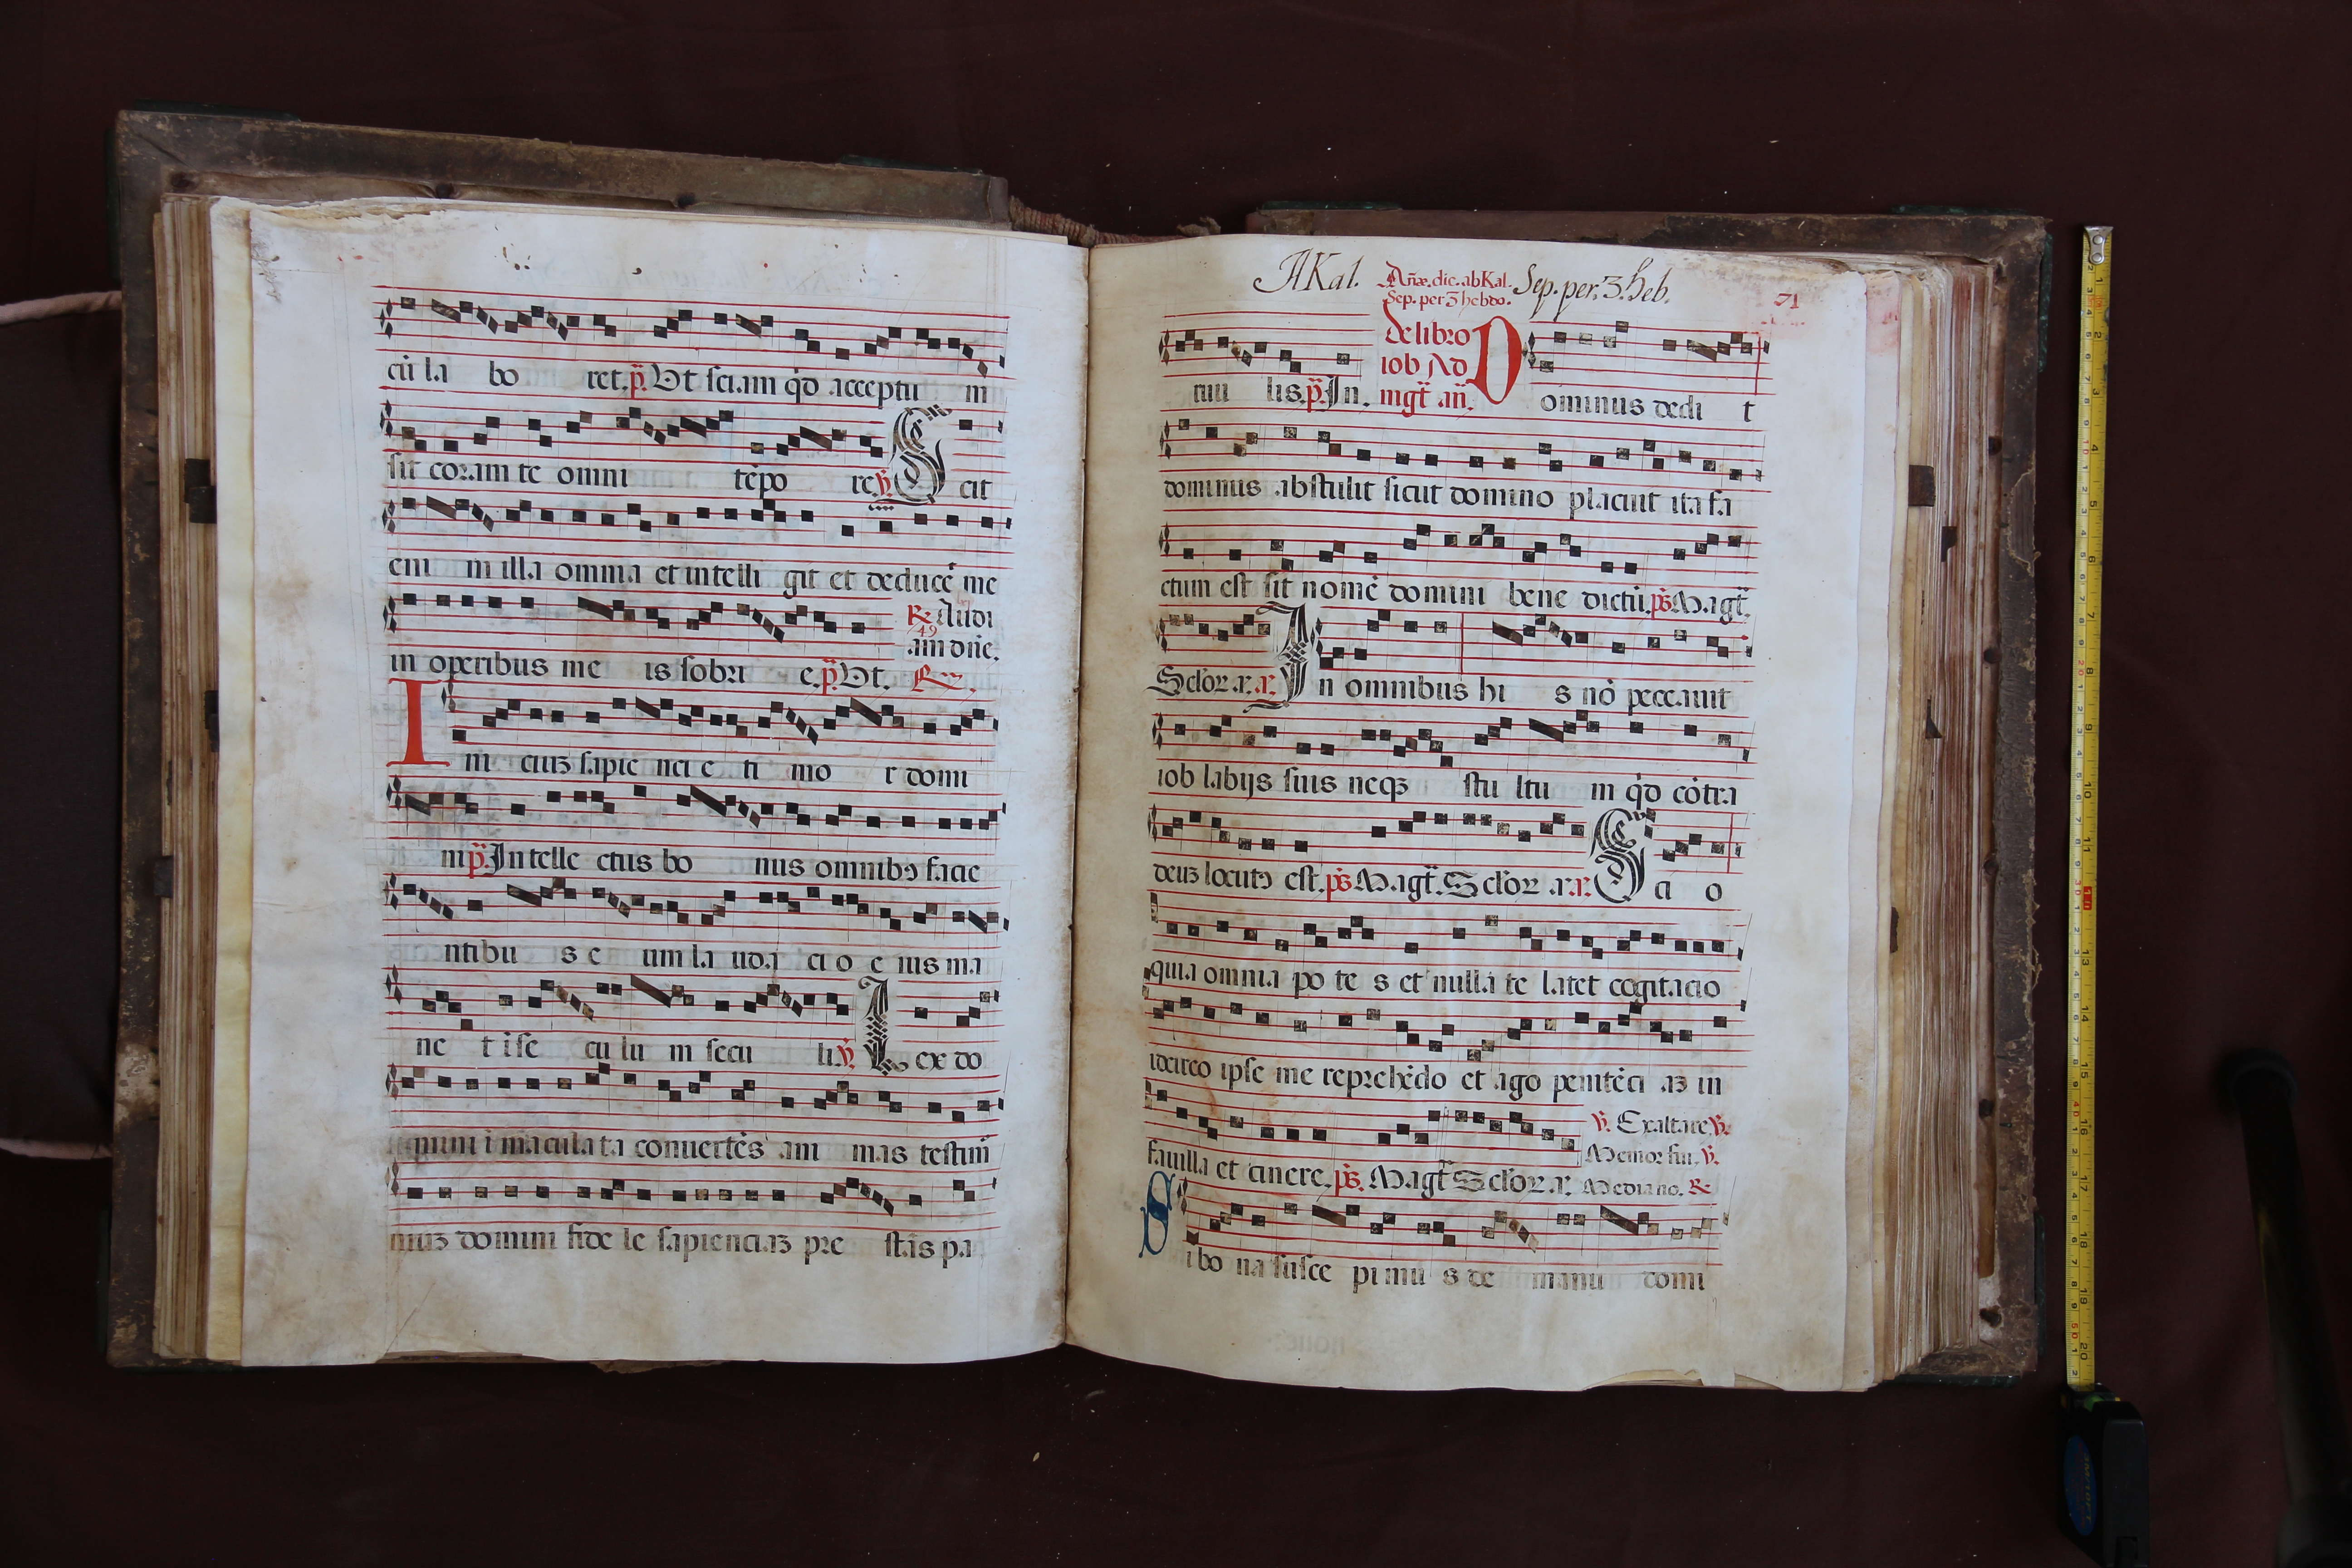 cū la bo ret. p̄ Vt sciam qđ acceptu m
sit coram te omni tēpo re ℣ Scit
eni m illa omnia et intelli git et deducēt me
in operibus me is sobri e. p̄ Vt.
℟ Audi
49
am dn̄e.
I ni cium sapie nci e ti mo r domi
ni p̄ Intelle ctus bo nus omnibꝯ facie
ntibu s e um la uda ci o e ius ma
ne t i se cu lu m secu li ℣ Lex do
mini ī maculata conuertēs ani mas testim̄
nium domini fide le sapienciam pre stās pa
A Kal. Sep. per. 3. heb.
Añæ. dic. ab Kal.
Sep. per 3 hebdo.
71
tuu lis. p̄ In.
De libro
iob Ad
mgt̄ an̄.
Dominus dedi t
dominus abstulit sicut domino placuit ita fa
ctum est sit nomē domini bene dictū. ps̄ Magt̄.
Sclōr a. a. In omnibus hi s nō peccauit
iob labijs suis neqꝫ stu ltu m qđ cōtra
deum locutꝯ est. ps̄ Magt̄. Sclōr a. a. Sci o
quia omnia po te s et nulla te latet cogitacio
idcirco ipse me reprehēdo et ago penitēci am in
fauilla et cinere. ps̄. Magt̄ Sclōr a.
℣. Exaltare ℣.
Memor fui. ℣.
Media no. ℟
Si bo na susce pimu s de manu domi